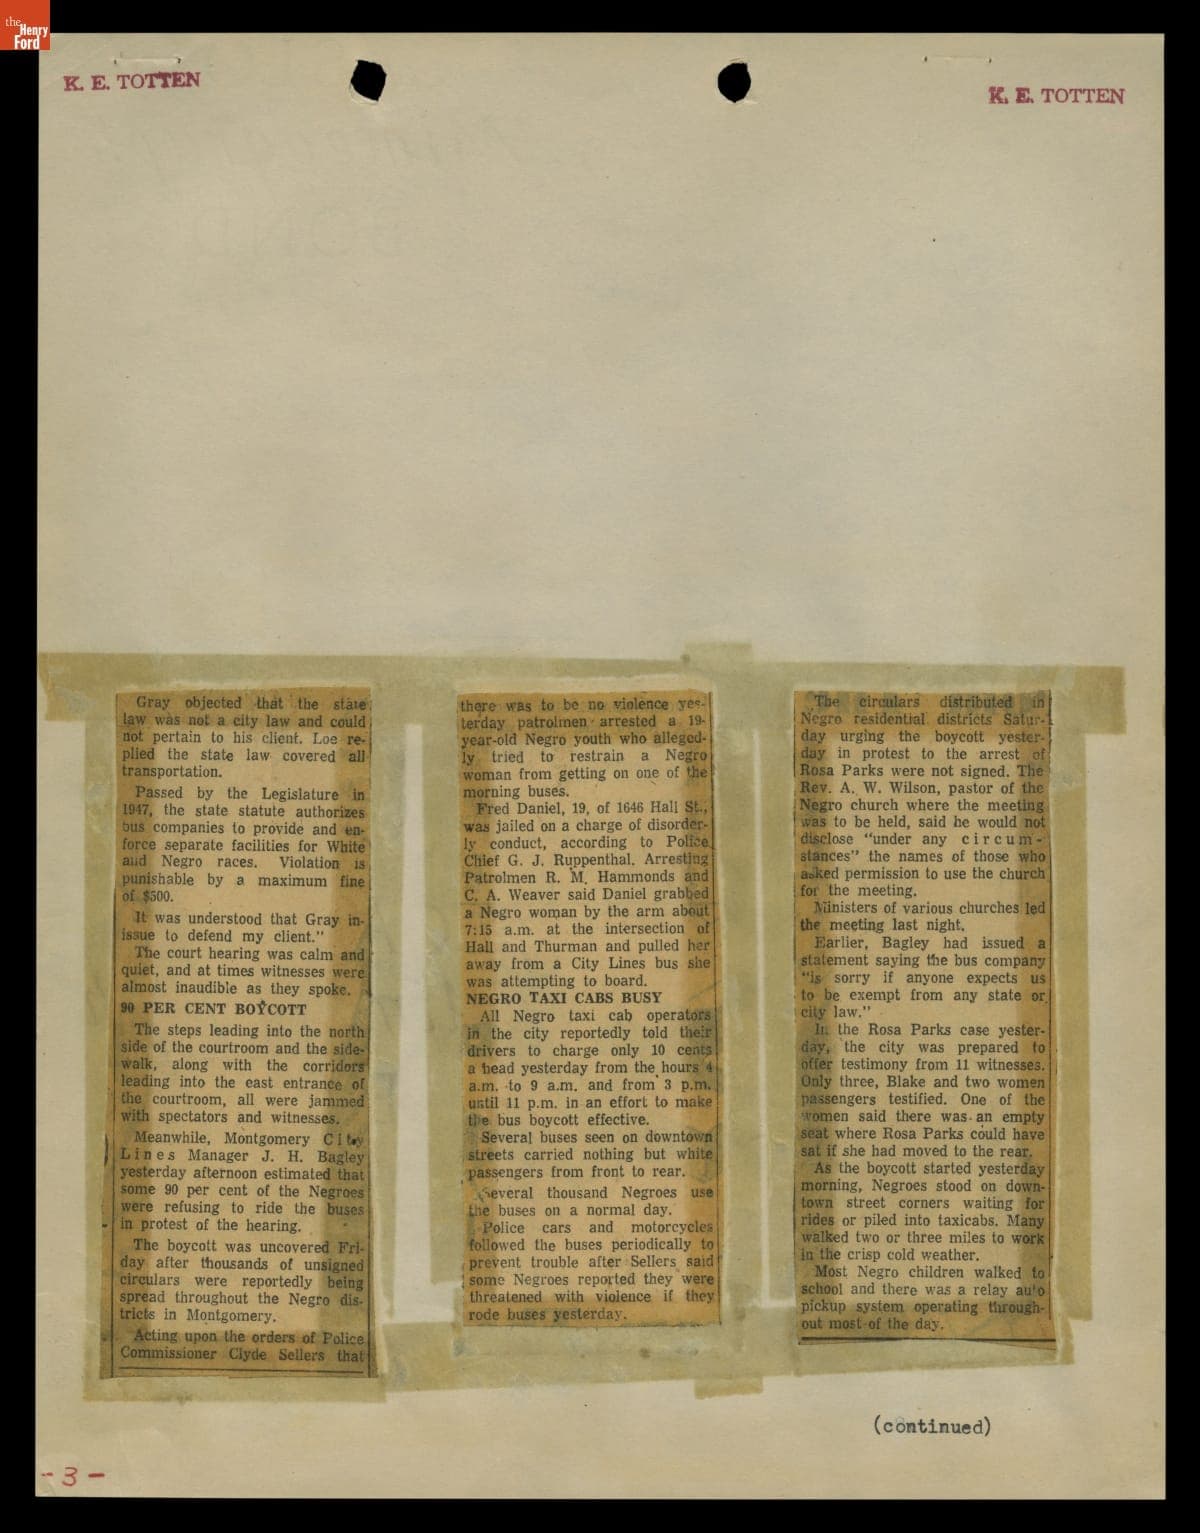 the
Henry
Ford
K. E. TOTTEN
K. E. TOTTEN
Gray objected that the state
law was not a city law and could
not pertain to his client. Loe re-
plied the state law covered all
transportation.
Passed by the Legislature in
1947, the state statute authorizes
bus companies to provide and en-
force separate facilities for White
and Negro races. Violation is
punishable by a maximum fine
of $500.
It was understood that Gray in-
issue to defend my client."
The court hearing was calm and
quiet, and at times witnesses were
almost inaudible as they spoke.
90 PER CENT BOYCOTT
The steps leading into the north
side of the courtroom and the side-
walk, along with the corridors
leading into the east entrance of
the courtroom, all were jammed
with spectators and witnesses.
Meanwhile, Montgomery City
Lines Manager J. H. Bagley
yesterday afternoon estimated that
some 90 per cent of the Negroes
were refusing to ride the buses
in protest of the hearing.
The boycott was uncovered Fri-
day after thousands of unsigned
circulars were reportedly being
spread throughout the Negro dis-
tricts in Montgomery.
Acting upon the orders of Police
Commissioner Clyde Sellers that
there was to be no violence yes-
terday patrolmen arrested a 19-
year-old Negro youth who alleged-
ly tried to restrain a Negro
woman from getting on one of the
morning buses.
Fred Daniel, 19, of 1646 Hall St.,
was jailed on a charge of disorder-
ly conduct, according to Police
Chief G. J. Ruppenthal. Arresting
Patrolmen R. M. Hammonds and
C. A. Weaver said Daniel grabbed
a Negro woman by the arm about
7:15 a.m. at the intersection of
Hall and Thurman and pulled her
away from a City Lines bus she
was attempting to board.
NEGRO TAXI CABS BUSY
All Negro taxi cab operators
in the city reportedly told their
drivers to charge only 10 cents
a head yesterday from the hours 4
a.m. to 9 a.m. and from 3 p.m.
until 11 p.m. in an effort to make
the bus boycott effective.
Several buses seen on downtown
streets carried nothing but white
passengers from front to rear.
Several thousand Negroes use
the buses on a normal day.
Police cars and motorcycles
followed the buses periodically to
prevent trouble after Sellers said
some Negroes reported they were
threatened with violence if they
rode buses yesterday.
The circulars distributed in
Negro residential districts Satur-
day urging the boycott yester-
day in protest to the arrest of
Rosa Parks were not signed. The
Rev. A. W. Wilson, pastor of the
Negro church where the meeting
was to be held, said he would not
disclose "under any circum-
stances" the names of those who
asked permission to use the church
for the meeting.
Ministers of various churches led
the meeting last night.
Earlier, Bagley had issued a
statement saying the bus company
"is sorry if anyone expects us
to be exempt from any state or
city law."
In the Rosa Parks case yester-
day, the city was prepared to
offer testimony from 11 witnesses.
Only three, Blake and two women
passengers testified. One of the
women said there was an empty
seat where Rosa Parks could have
sat if she had moved to the rear.
As the boycott started yesterday
morning, Negroes stood on down-
town street corners waiting for
rides or piled into taxicabs. Many
walked two or three miles to work
in the crisp cold weather.
Most Negro children walked to
school and there was a relay auto
pickup system operating through-
out most of the day.
(continued)
- 3 -